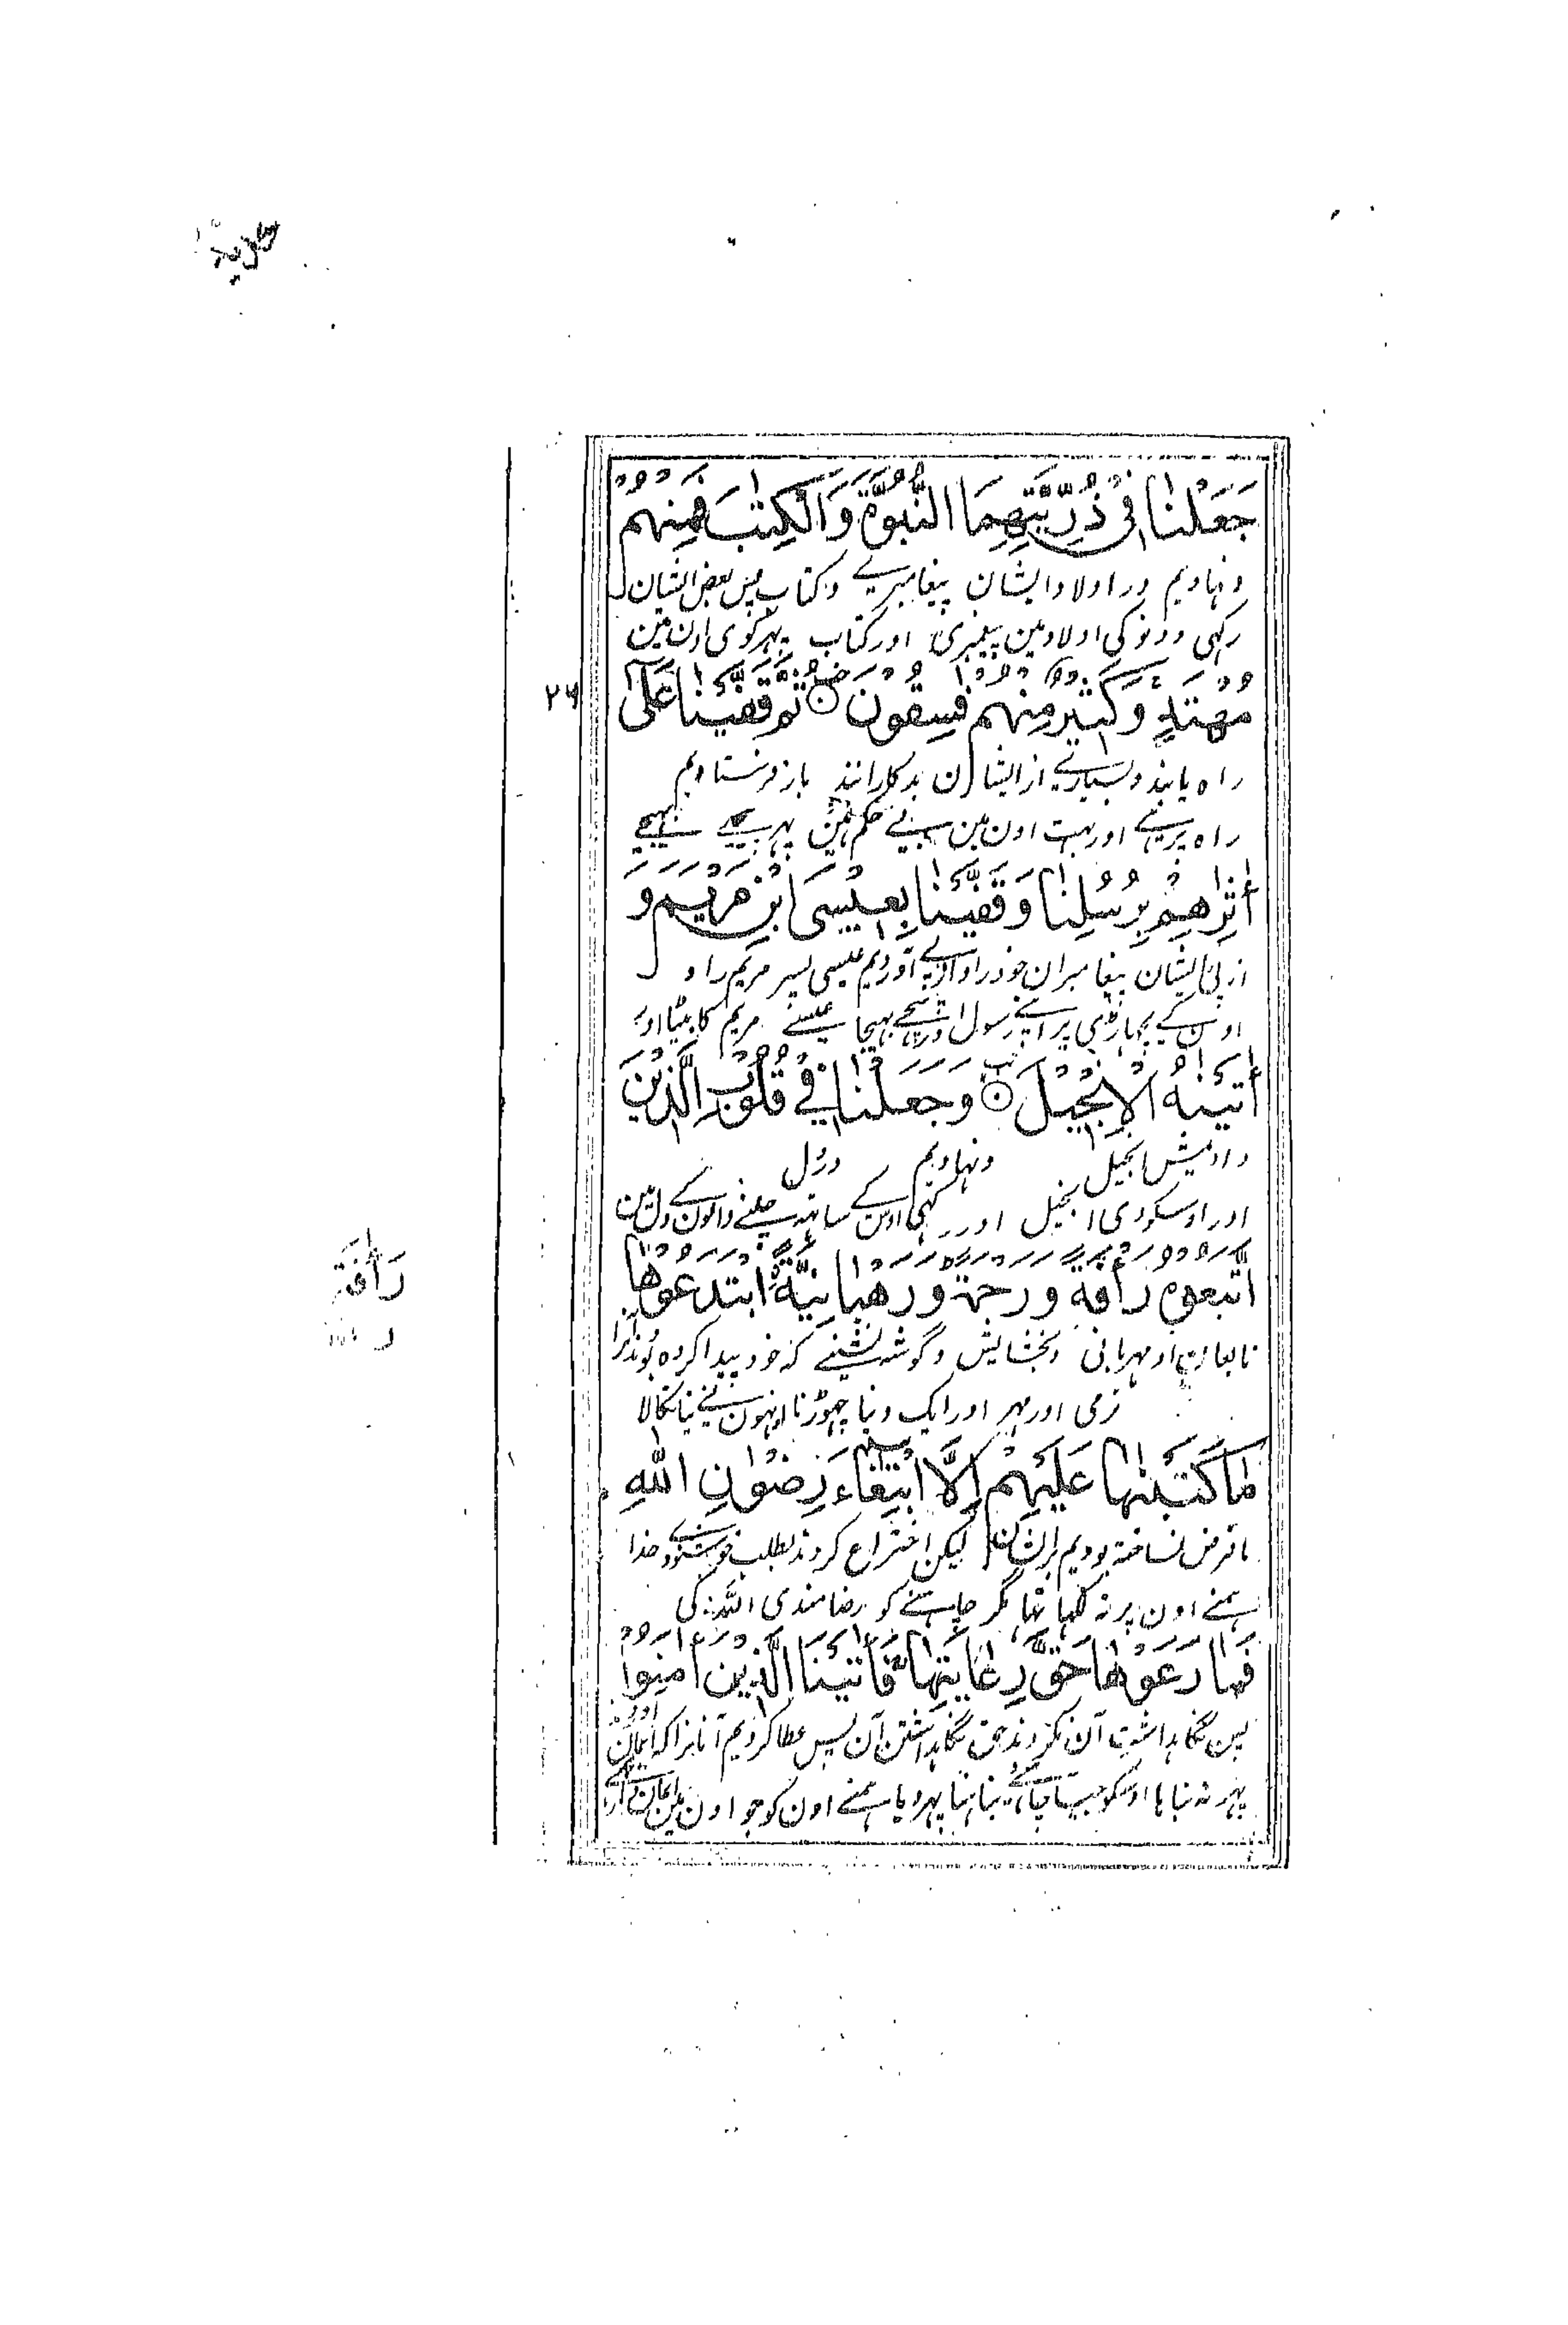 جَعَلْنَا فِيْ ذُرِّيَّتِهِمَا النُّبُوَّةَ وَالْكِتٰبَ فَمِنْهُمْ
ونهادیم در اولاد ایشان پیغامبرے وکتاب پس بعض ایشان
رکھی دونوکی اولاد مین پیغمبری اور کتاب پہر کوی اون مین
مُهْتَدٍ وَكَثِيْرٌ مِنْهُمْ فٰسِقُوْنَ ۞ ثُمَّ قَفَّيْنَا عَلٰى
۲۶
راه یابند وبسیارے از ایشان بدکارانند باز فرستادیم
راه پر ہے اور بہت اون مین بے حکم ہین پہر پیچھے بہیجے
اٰثٰرِهِمْ بِرُسُلِنَا وَقَفَّيْنَا بِعِيْسَى ابْنِ مَرْيَمَ وَ
از پی ایشان پیغامبران خود را و از پے آوردیم عیسی پسر مریم را و
اون کے پچہاڑی پر اپنے رسول اور پیچھے بہیجا عیسے مریم کا بیٹا اور
اٰتَيْنٰهُ الْاِنْجِيْلَ ۞ وَجَعَلْنَا فِيْ قُلُوْبِ الَّذِيْنَ
دادیمش انجیل ونهادیم در دل
اور اوسکو دی انجیل اور رکہی اوس کے ساتہہ چلنے والون کے دل مین
اتَّبَعُوْهُ رَاْفَةً وَرَحْمَةً وَرَهْبَانِيَّةَ ابْتَدَعُوْهَا
رَاْفَةً
تابعان او مہربانی وبخشایش وگوشہ نشینے کہ خود پیدا کرده بودند آنرا
نرمی اور مہر اور ایک دنیا چہوڑنا اونہون نے نیا نکالا
مَا كَتَبْنٰهَا عَلَيْهِمْ اِلَّا ابْتِغَاءَ رِضْوَانِ اللّٰهِ
ما فرض نساختہ بودیم بر ایشان لیکن اختراع کردند بطلب خوشنودے خدا
ہمنے اون پر نہ لکہا تہا مگر چاہنے کو رضامندی اللہ کی
فَمَا رَعَوْهَا حَقَّ رِعَايَتِهَا فَاٰتَيْنَا الَّذِيْنَ اٰمَنُوْا
پس نگاہداشت آن نکردند حق نگاہداشتن آن پس عطا کردیم آنانرا کہ ایمان آوردند
پہر نہ نباہا اوسکو جیسا چاہئے نباہنا پہر دیا ہمنے اون کو جو اون مین ایمان دار تہے